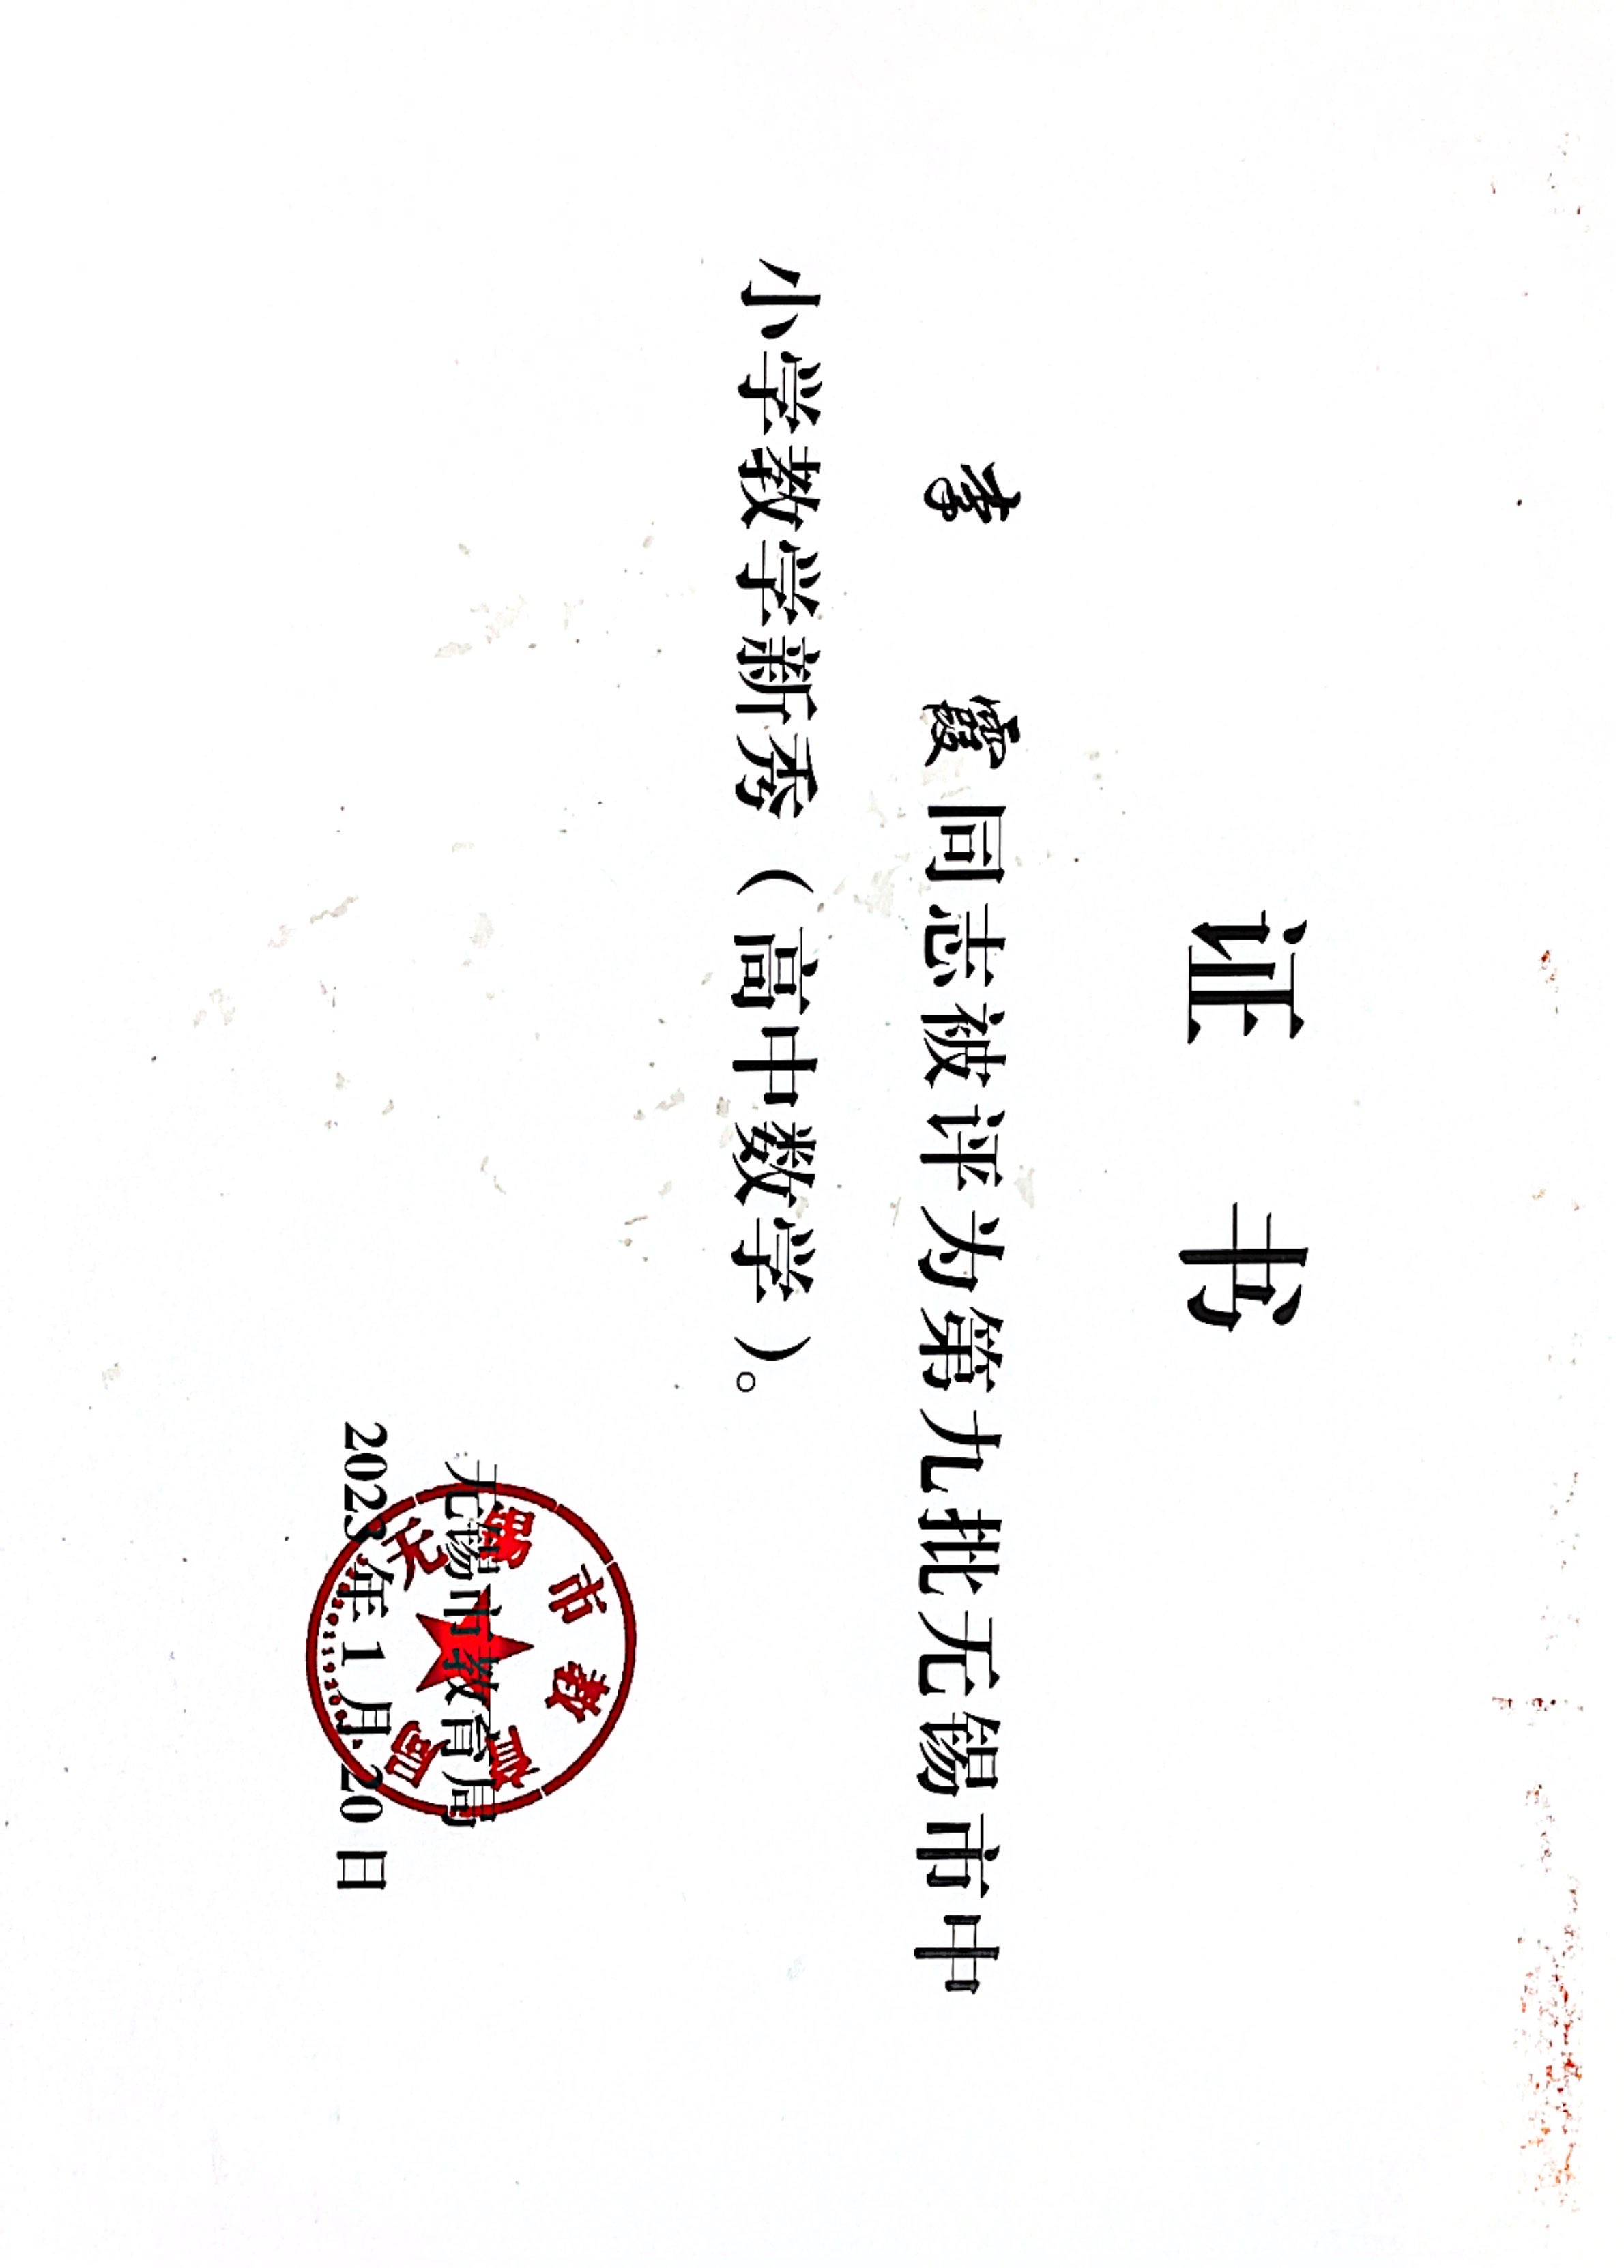 证 书
李 霞同志被评为第九批无锡市中
小学教学新秀（高中数学）。
无锡市教育局
2023年1月20日
无锡市教育局